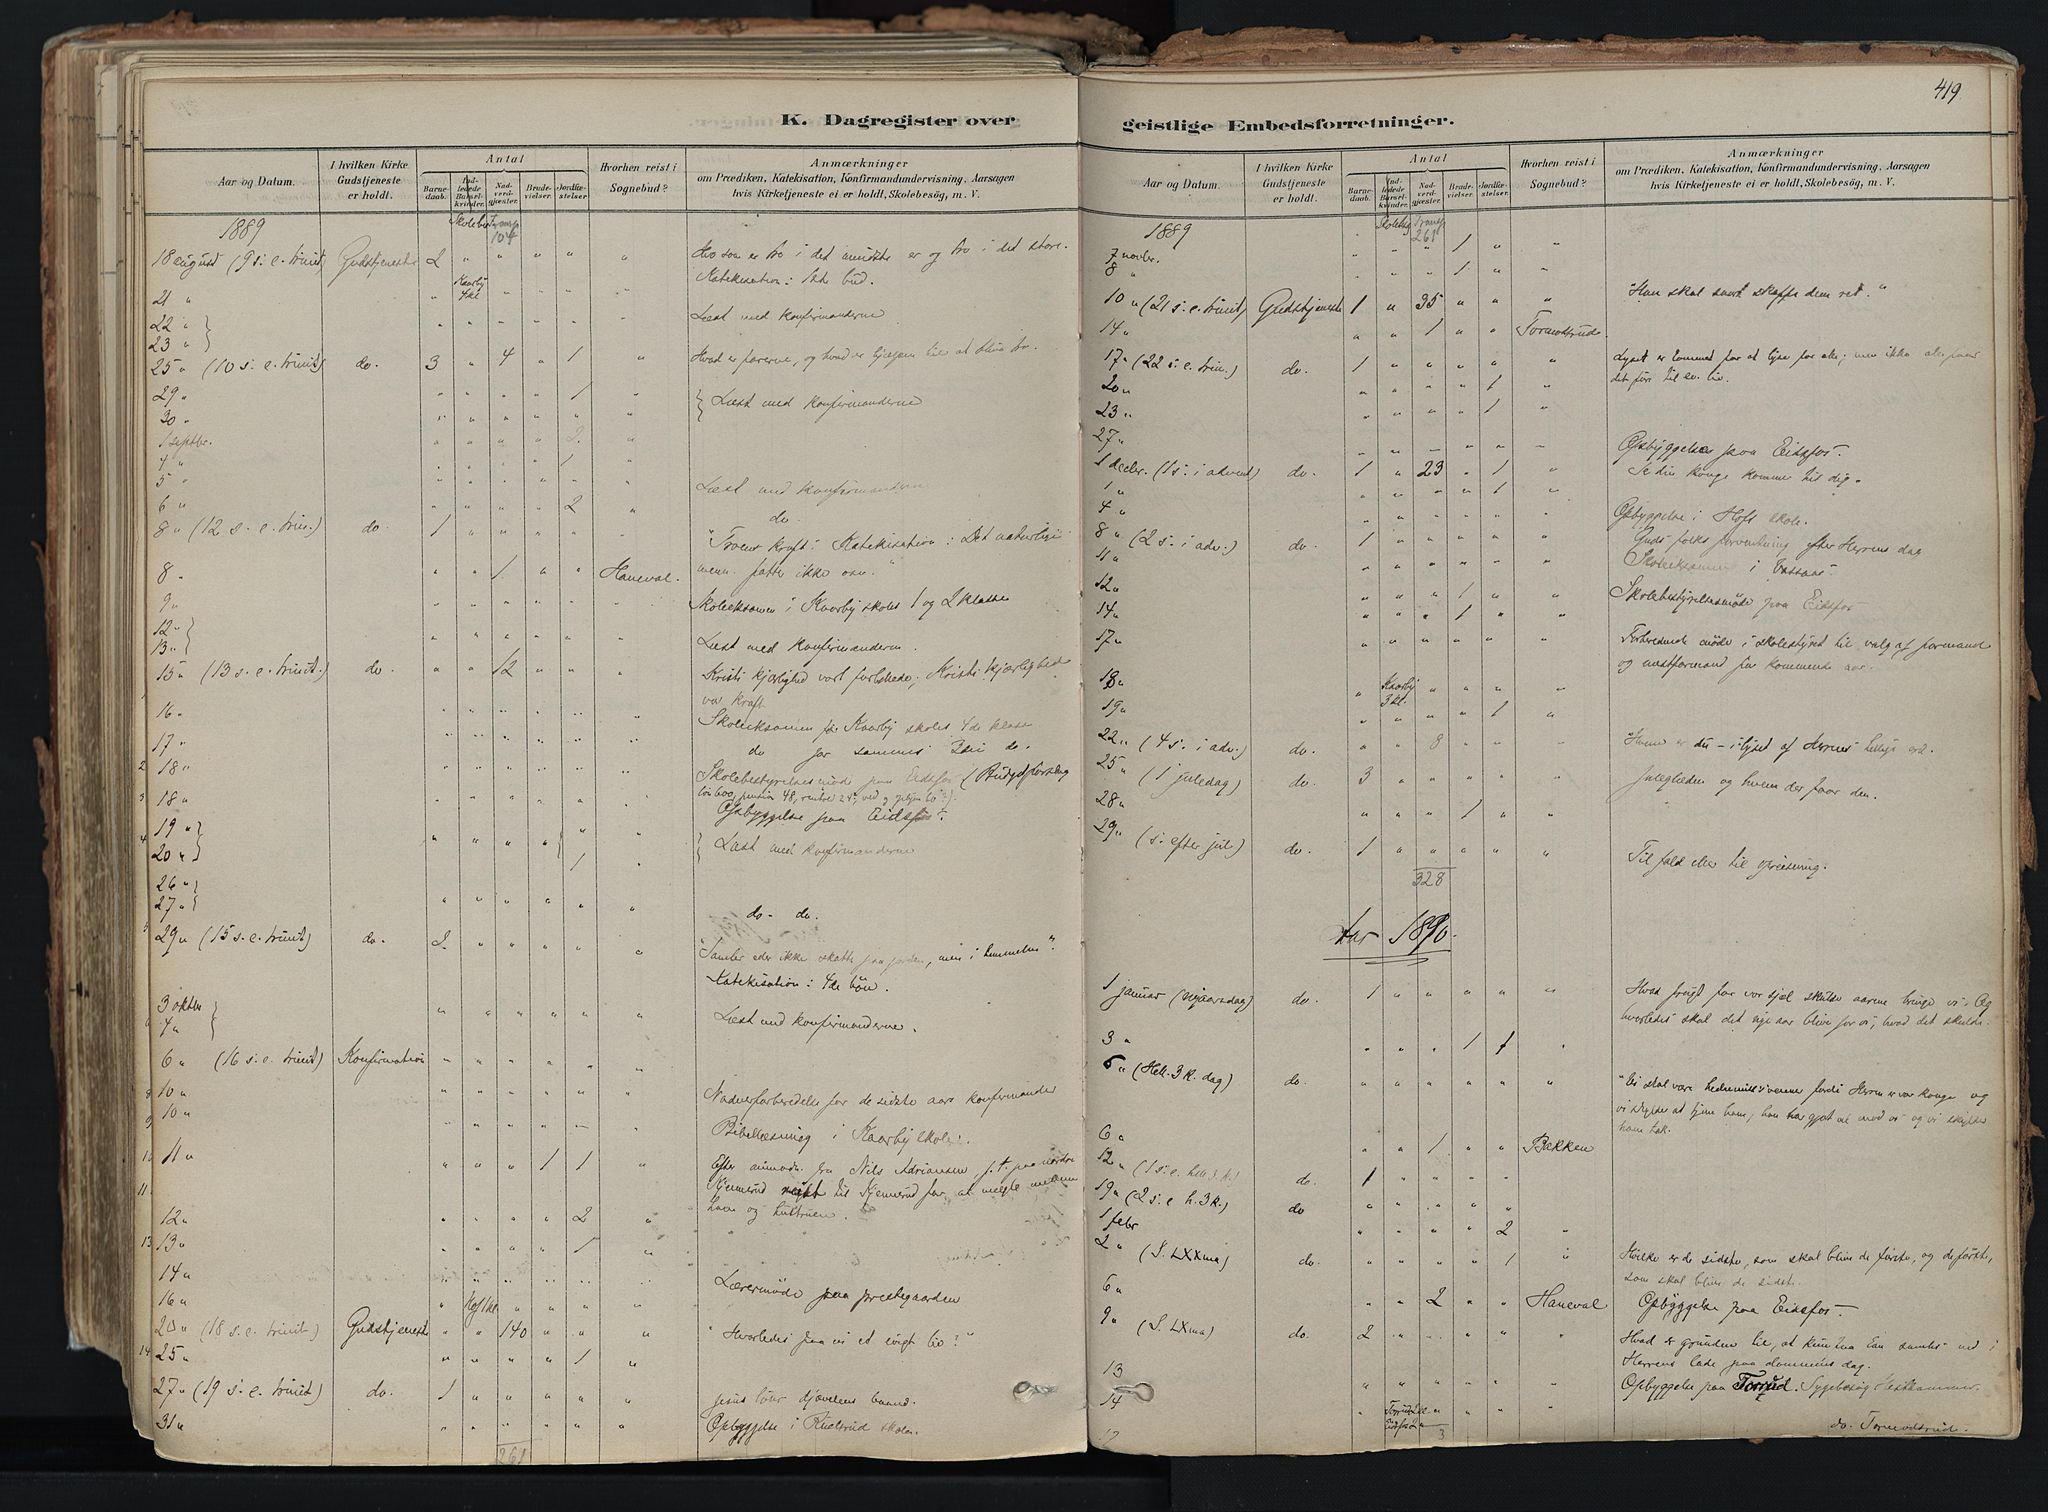 K. Dagregister over
Aar og Datum.
I hvilken Kirke
Gudstjeneste
er holdt.
Antal
Barne-
daab.
Ind-
ledede
Barsel-
kvinder.
Nad-
verd-
gjæster.
Brude-
vielser.
Jordfæ-
stelser.
Hvorhen reist i
Sognebud?
Anmærkninger
om Prædiken, Katekisation, Konfirmandundervisning, Aarsagen
hvis Kirketjeneste ei er holdt, Skolebesøg, m. V.
1889 Skolebes Transp 104
18 august (9 s. e. trinit) Gudstjeneste 2 " " " " " Hvo som er tro i det mindste er og tro i det store.
Katekisation: 1ste bud.
21 " " Kaarby 4 kl " " " "
22 " } Læst med konfirmanderne
23 " }
25 " (10 s. e. trinit) do. 3 " 4 " 1 "
29 " " " " " 1 " } Læst med konfirmanderne
30 " " " " " " "
1 septbr. " " " " 2 "
4 " " " " " 1 "
5 " Læst med konfirmanderne
6 " " " " " 2 " do.
8 " (12 s. e. trin.) do. 1 " " " " " "Troens kraft". Katekisation: Det naturlige
8 " " " 1 " " Haneval. menn. fatter ikke
9 " " " " " " Skoleeksamen i Kaarby skoles 1 og 2 klasse
12 " }
13 " } Læst med konfirmanderne.
15 " (13 s. e. trinit.) do. " " 12 " " " Kristi kjærlighed vort forbillede; Kristi kjærlighed
vor kraft.
16 " Skoleeksamen for Kaarby skoles 4de klasse
17 " do for sammes 3die do.
18 " Skolebestyrelsesmøde paa Eidsfos (Budgetforslag
18 " Opbyggelse paa Eidsfos.
19 " }
20 " } 1 } Læst med konfirmanderne
26 " }
27 " } do - do.
29 " (15 s. e. trinit) do. 2 " " " " " "Samler eder ikke skatte paa jorden, men i himmelen".
Katekisation: 4de bön.
3 oktbr }
4 " } Læst med konfirmanderne.
6 " (16 s. e. trinit) Konfirmation " " " " " "
10 " Nadverforberedelse for de sidste aars konfirmander
10 " Bibellæsning i Kaarby skole.
11 " " " " 1 1 " Efter anmodn. fra Nils Adriansen, p.t. paa nordre
Kjennerud reist til Kjennerud for at megle mellem
ham og hustruen.
12 " " " " " 2 "
13 " " " " " 1 "
14 " Læreremöde paa prestegaarden
16 " " Hof 1 kl " " " "
20 " (18 s. e. trinit) Gudstjeneste " " 140 " " " "Hvorledes faa vi et evigt liv?"
25 " " " " " 1 "
27 " (19 s. e. trinit) do. 1 " " " " " Jesus löser djævelens baand.
31 " Opbyggelse i Ruelsrud skole.
261
419
geistlige Embedsforretninger.
Aar og Datum.
I hvilken Kirke
Gudstjeneste
er holdt.
Antal
Barne-
daab.
Ind-
ledede
Barsel-
kvinder.
Nad-
verd-
gjæster.
Brude-
vielser.
Jordfæ-
stelser.
Hvorhen reist i
Sognebud?
Anmærkninger
om Prædiken, Katekisation, Konfirmandundervisning, Aarsagen
hvis Kirketjeneste ei er holdt, Skolebesøg, m. V.
1889 Skolebes Transp 261
7 novbr. " " " 1 " "
8 " " " " 1 " "
10 " (21 s. e. trinit) Gudstjeneste 1 " 35 " " " "Han skal snart skaffe dem ret."
14 " " " 1 " " Tormodsrud
17 " (22 s. e. trin.) do. 1 " " " " " Lyset er kommet for at lyse for alle; men ikke alle
20 " " " " " 1 "
23 " " " " " 1 "
27 " Opbyggelse paa Eidsfos.
1 decbr. (1 s. i advent) do. 1 " 23 " 1 " Se din konge kommer til dig.
1 " " " " " 1 "
4 " Opbyggelse i Hofs skole.
8 " (2 s. i adv.) do. 1 " " " " " Guds folks forventning efter Herrens dag
11 " Skoleeksamen i Vassaas.
12 " " " " 1 " " Skolebestyrelsesmöde paa Eidsfos
14 " " " " 1 " "
17 " Forberedende möde i skolestyret til valg af formand
og næstformand for kommende aar.
18 " " Kaarby 3 kl. " " " "
19 " " " " " 1 "
22 " (4 s. i adv.) do. " " 8 " " " "Hvem er du - i lyset af Herrens hellige ord.
25 " (1 juledag) do. 3 " " " " " Juleglæden og hvem der faar den.
28 " " " " 1 " "
29 " (s. efter jul) do. 1 " " " " " Til fald eller til opreisning.
328
Aar 1890.
1 januar (nyaarsdag) do. 1 " " " " " Hvad frugt for vor sjæl skulde aarene bringe vi. Og
hvorledes skal det nye aar blive for os, hvad det skulde.
3 " " " " 1 1 "
5 " (Hell. 3 K. dag) do. " " " " " " "Vi skal være hedningemissionens venner fordi Herren er vor konge og
vi skylder at tjene ham, han har gjort vel mod os og vi skylder
ham tak.
6 " " " 1 " " Bakken
12 " (1 s. e. hell. 3 K.) do. 1 " " " "
19 " (2 s. e h. 3 K.) do " " " " "
1 febr " " " " 2 "
2 " (S. LXXma) do. " " " " 1 " Hvilke er de sidste, som skal blive de første, og de første,
som skal blive de sidste.
6 " " " 2 " " Haneval Opbyggelse paa Eidsfos.
9 " (S. LXma) do. 2 " " " " " Hvad er grunden til, at kun saa faa samles ind i
Herrens lade paa dommens dag.
13 Opbyggelse paa Torrud. Sygebesög Hestkammer.
14 " Torrud 2 kl " " "
Eidsfos 2 " 3 do. Tormodsrud.